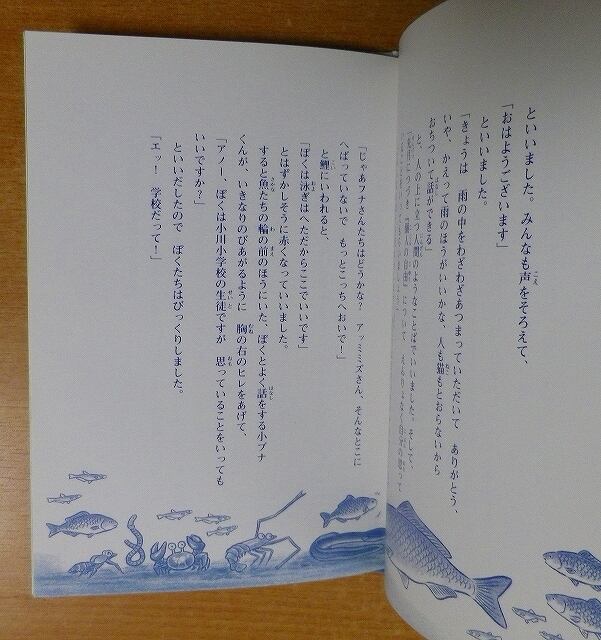 といいました。みんなも声をそろえて、
「おはようございます」
といいました。
「きょうは　雨の中をわざわざあつまっていただいて　ありがとう、
いや、かえって雨のほうがいいかな、人も猫もとおらないから
おちついて話ができる」
と、人の上に立つ人間のようなことばでいいました。そして、
「じゃあフナさんたちはどうかな？　アッミミズさん、そんなとこに
へばっていないで　もっとこっちへおいで！」
と鯉にいわれると、
「ぼくは泳ぎはへただからここでいいです」
とはずかしそうに赤くなっていいました。
すると魚たちの輪の前のほうにいた、ぼくとよく話をする小ブナ
くんが、いきなりのびあがるように　胸の右のヒレをあげて、
「アノー、ぼくは小川小学校の生徒ですが　思っていることをいっても
いいですか？」
といいだしたので　ぼくたちはびっくりしました。
「エッ！　学校だって！」